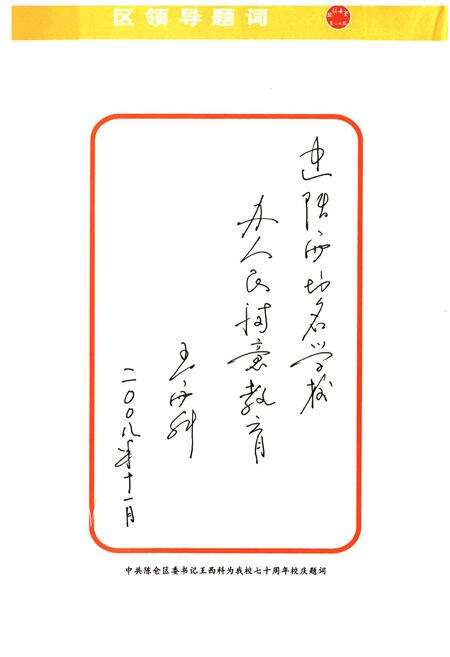 区领导题词
建陕西功名学校
办人民满意教育
王西科
二〇〇八年十一月
中共陈仓区委书记王西科为我校七十周年校庆题词